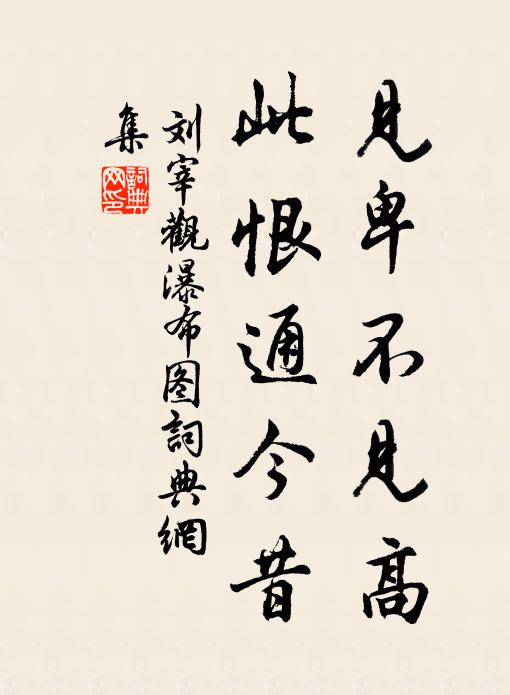 見卑不見高
此恨通今昔
刘宰觀瀑布图詞典網
集
詞典网印